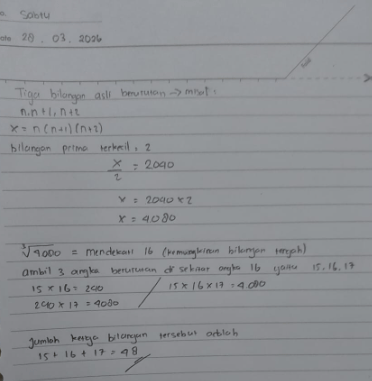 Sabtu
28 . 03 . 2026
Tiga bilangan asli berurutan → misal :
n, n+1, n+2
x = n(n+1)(n+2)
bilangan prima terkecil = 2
x/2 = 2040
x = 2040 x 2
x = 4080
∛4000 = mendekati 16 (kemungkinan bilangan tengah)
ambil 3 angka berurutan di sekitar angka 16 yaitu 15, 16, 17
15 x 16 = 240 15 x 16 x 17 = 4.080
240 x 17 = 4080
Jumlah ketiga bilangan tersebut adalah
15 + 16 + 17 = 48